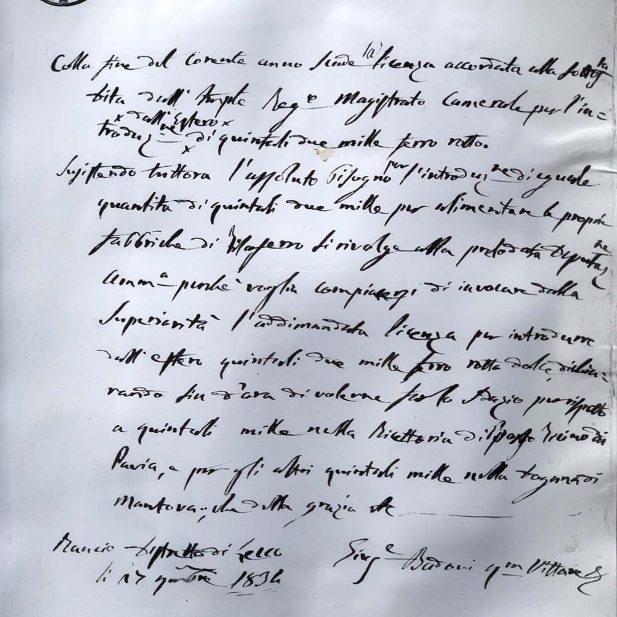 Colla fine del corente anno scade la licenza accordata alla sottos
ritta dall' Imple Rege Magistrato Camerale per l'in=
troduzne dall'Estero di quintali due mille ferro rotto.
Susistendo tuttora l'assoluto bisogno per l'introduzne di eguale
quantita di quintali due mille per alimentare le proprie
fabbriche di filoferro si rivolge alla prelodata Deputazne
Comma perche voglia compiacersi di invocare dalla
Superiorità l'addimandata licenza per introdurre
dall'estero quintali due mille ferro rotto dolce, dichia=
rando fin d'ora di volerne far lo Sdazio per rispetto
a quintali mille nella Ricettoria di Porto Ticino di
Pavia, e per gli altri quintali mille nella Dogana di
Mantova, che della grazia
Distretto di Lecco
li 17 9mbre 1834
Giuse Badoni qm Vittore